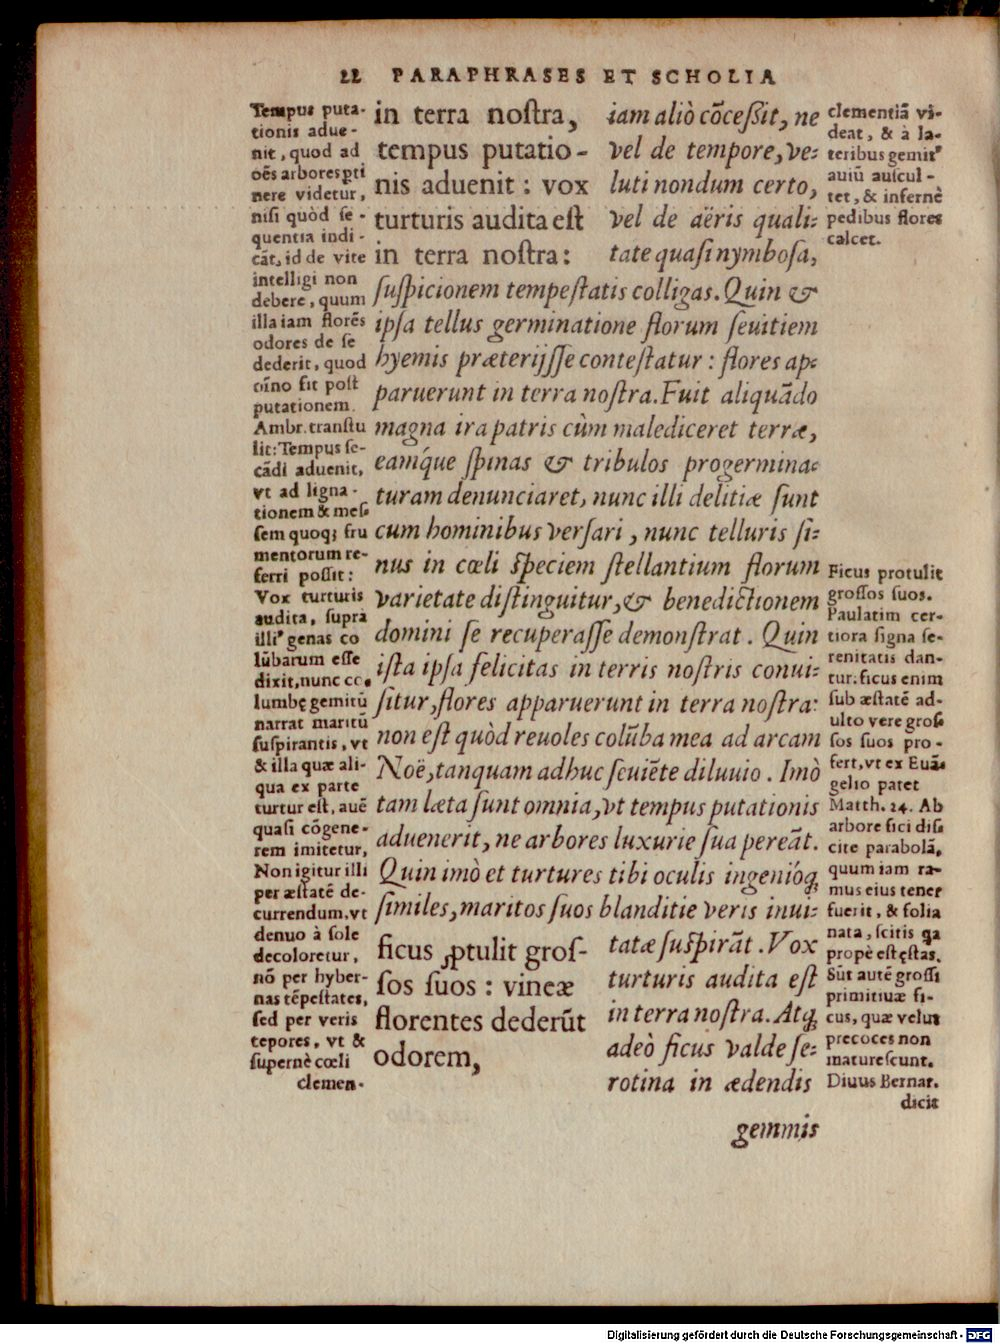 22 PARAPHRASES ET SCHOLIA
Tempus puta-
tionis adue-
nit, quod ad
oẽs arbores ꝑti
nere videtur,
nisi quòd se-
quentia indi-
cãt, id de vite
intelligi non
debere, quum
illa iam florẽs
odores de se
dederit, quod
oĩno fit post
putationem.
Ambr. transtu
lit: Tempus se-
cãdi aduenit,
vt ad ligna-
tionem & mes-
sem quoq; fru
mentorum re-
ferri possit:
Vox turturis
audita, suprà
illiꝰ genas co
lũbarum esse
dixit, nunc co-
lumbę gemitũ
narrat maritũ
suspirantis, vt
& illa quæ ali-
qua ex parte
turtur est, auẽ
quasi cõgene-
rem imitetur,
Non igitur illi
per æstatẽ de-
currendum, vt
denuo à sole
decoloretur,
nõ per hyber-
nas tẽpestates,
sed per veris
tepores, vt &
supernè cœli
clemen-
in terra nostra,
tempus putatio-
nis aduenit: vox
turturis audita est
in terra nostra:
iam aliò cõcessit, ne
vel de tempore, ve-
luti nondum certo,
vel de aëris quali-
tate quasi nymbosa,
suspicionem tempestatis colligas. Quin &
ipsa tellus germinatione florum seuitiem
hyemis præterijsse contestatur: flores ap-
paruerunt in terra nostra. Fuit aliquãdo
magna ira patris cùm malediceret terræ,
eamq́ue spinas & tribulos progermina-
turam denunciaret, nunc illi delitiæ sunt
cum hominibus versari, nunc telluris si-
nus in cœli speciem stellantium florum
varietate distinguitur, & benedictionem
domini se recuperasse demonstrat. Quin
ista ipsa felicitas in terris nostris conui-
situr, flores apparuerunt in terra nostra:
non est quòd reuoles colũba mea ad arcam
Noë, tanquam adhuc seuiẽte diluuio. Imò
tam læta sunt omnia, vt tempus putationis
aduenerit, ne arbores luxurie sua pereãt.
Quin imò et turtures tibi oculis ingenióq;
similes, maritos suos blanditie veris inui-
ficus ꝓtulit gros-
sos suos: vineæ
florentes dederũt
odorem,
tatæ suspirãt. Vox
turturis audita est
in terra nostra. Atq;
adeò ficus valde se-
rotina in ædendis
gemmis
clementiã vi-
deat, & à la-
teribus gemitꝰ
auiũ auscul-
tet, & infernè
pedibus flores
calcet.
Ficus protulit
grossos suos.
Paulatim cer-
tiora signa se-
renitatis dan-
tur: ficus enim
sub æstatẽ ad-
ulto vere gros-
sos suos pro-
fert, vt ex Euã-
gelio patet
Matth. 24. Ab
arbore fici dis
cite parabolã,
quum iam ra-
mus eius tener
fuerit, & folia
nata, scitis qa
propè est ęstas.
Sũt autẽ grossi
primitiuæ fi-
cus, quæ velut
precoces non
maturescunt.
Diuus Bernar.
dicit
gemmis
Digitalisierung gefördert durch die Deutsche Forschungsgemeinschaft - DFG